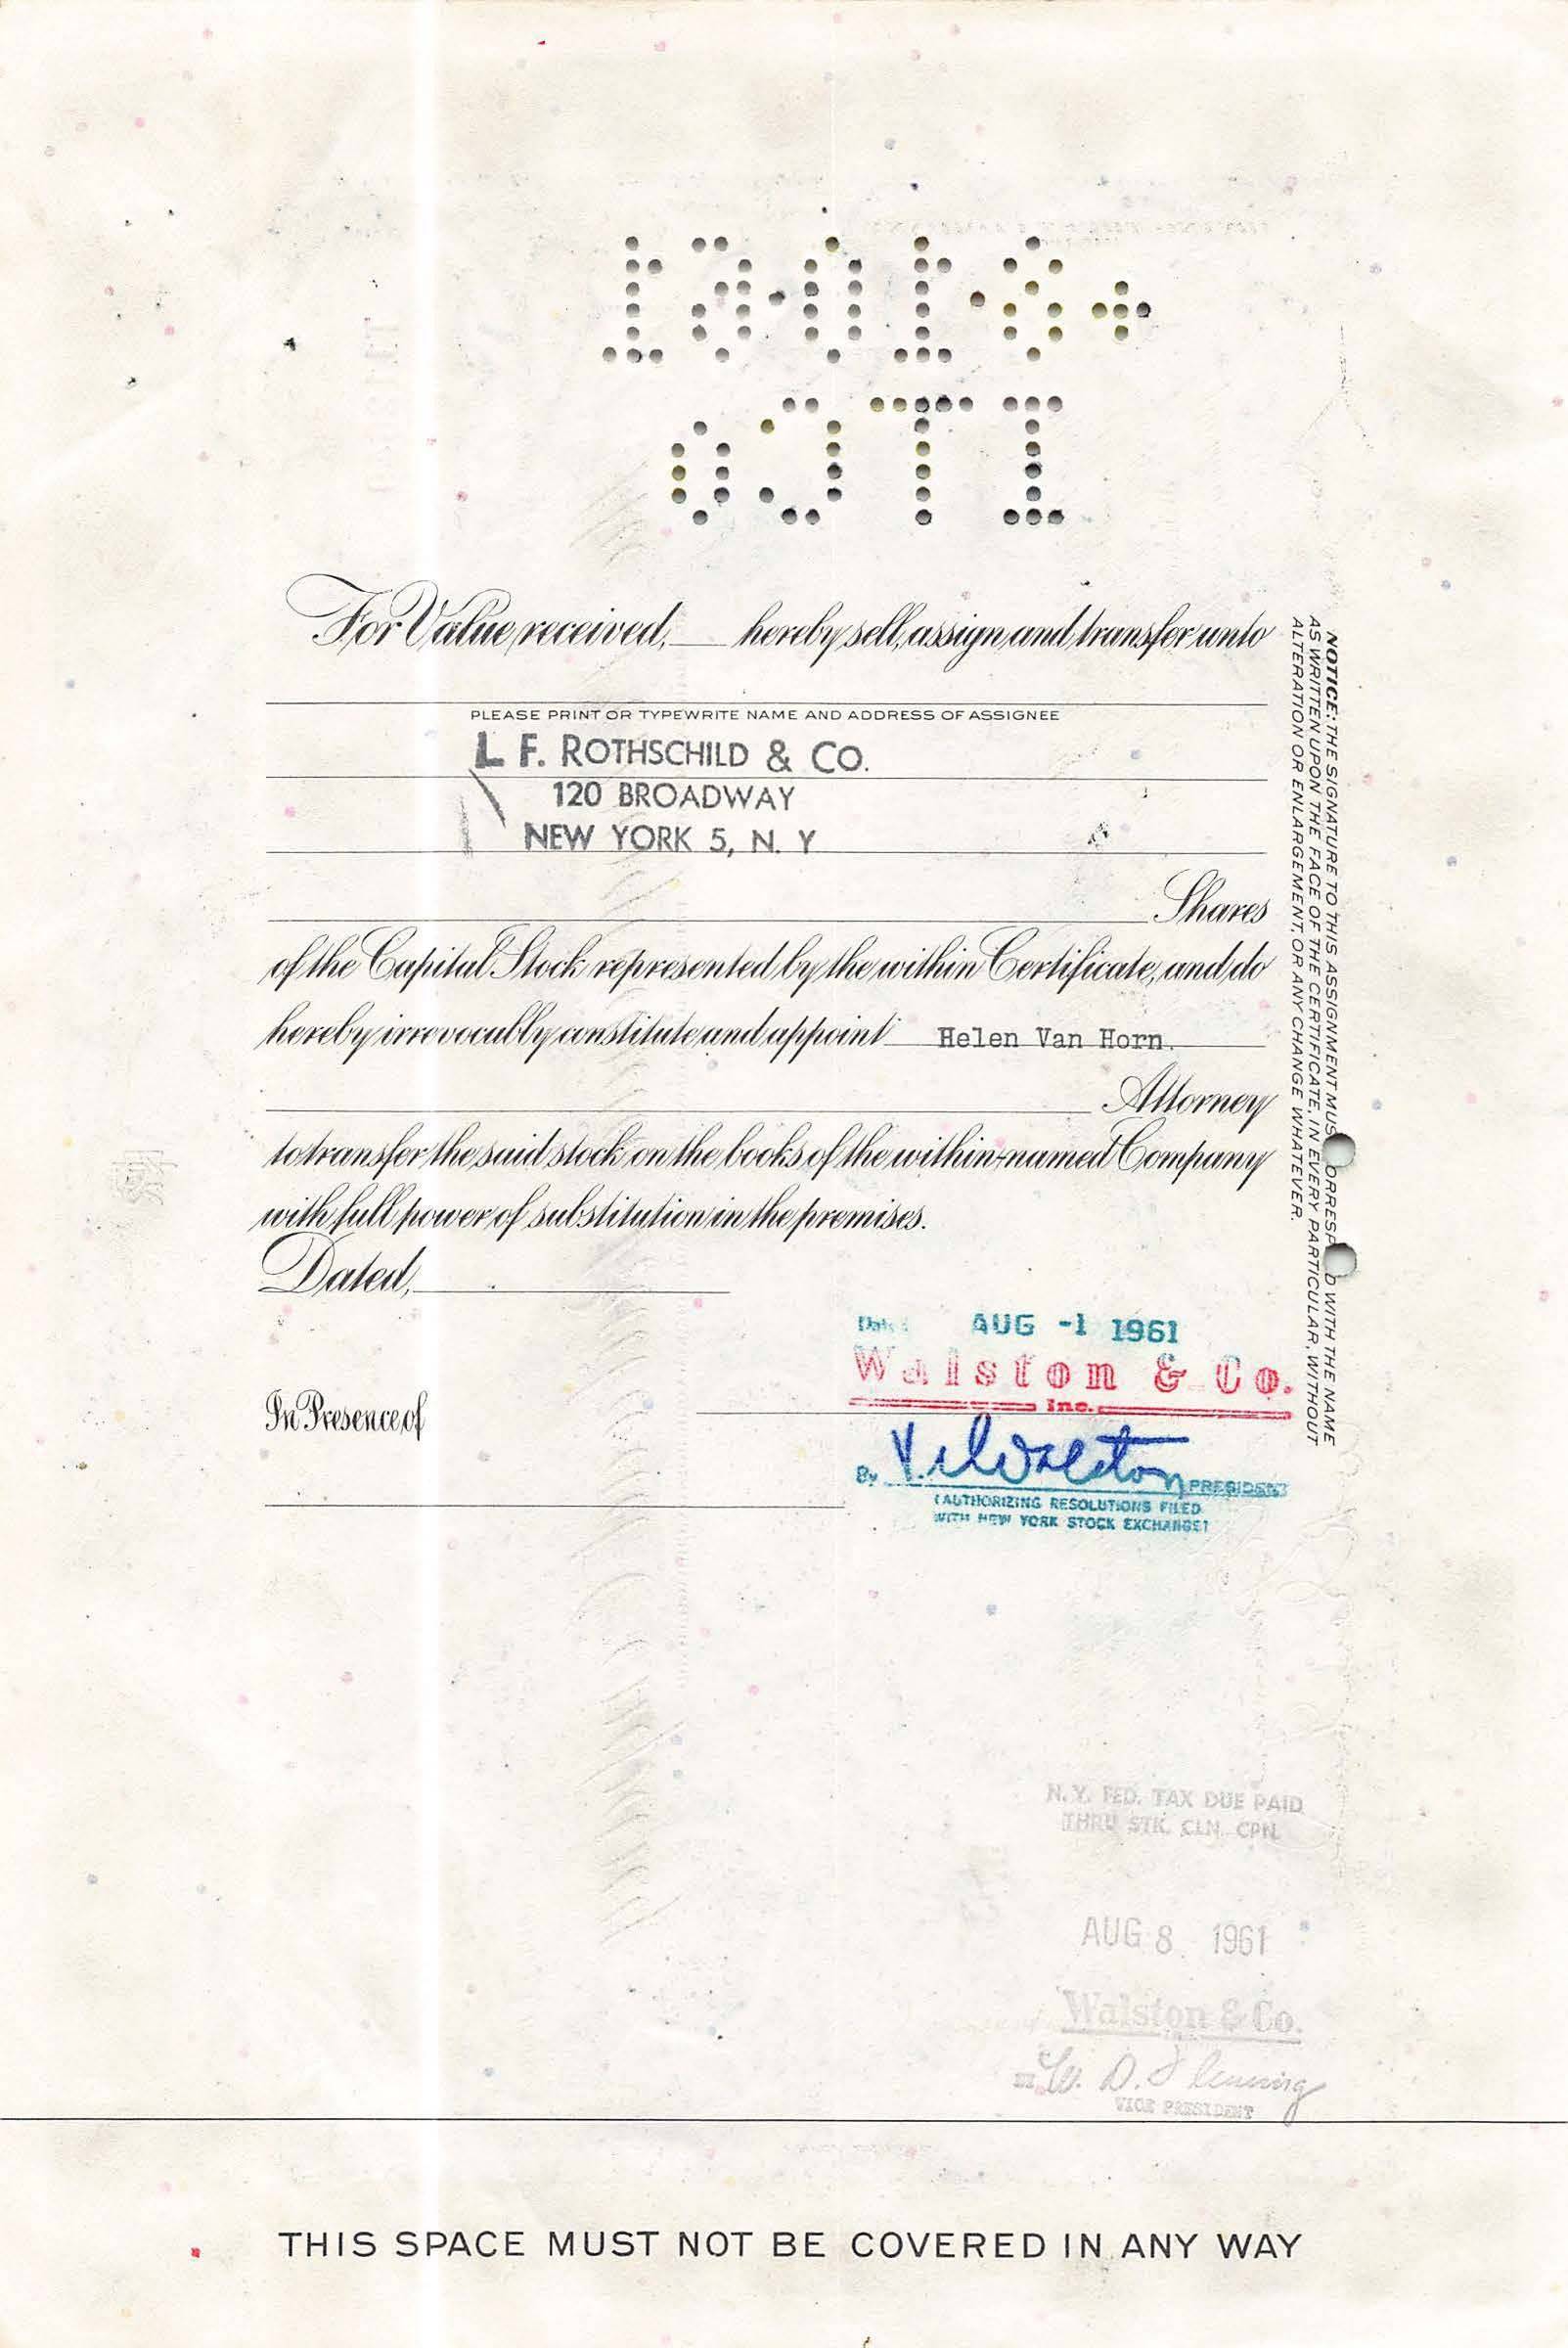 +8·10·61
ITCo
For Value received, hereby sell, assign and transfer unto
PLEASE PRINT OR TYPEWRITE NAME AND ADDRESS OF ASSIGNEE
L F. ROTHSCHILD & CO.
120 BROADWAY
NEW YORK 5, N. Y
Shares
of the Capital Stock represented by the within Certificate, and do
hereby irrevocably constitute and appoint Helen Van Horn.
Attorney
to transfer the said stock on the books of the within-named Company
with full power of substitution in the premises.
Dated,
In Presence of
Date: AUG -1 1961
Walston & Co.
Inc.
By V. Walston PRESIDENT
(AUTHORIZING RESOLUTIONS FILED
WITH NEW YORK STOCK EXCHANGE)
NOTICE: THE SIGNATURE TO THIS ASSIGNMENT MUS ORRESP D WITH THE NAME
AS WRITTEN UPON THE FACE OF THE CERTIFICATE, IN EVERY PARTICULAR, WITHOUT
ALTERATION OR ENLARGEMENT, OR ANY CHANGE WHATEVER.
N. Y. FED. TAX DUE PAID
THRU STK. CLN. CPN.
AUG 8 1961
Walston & Co.
VICE PRESIDENT
THIS SPACE MUST NOT BE COVERED IN ANY WAY